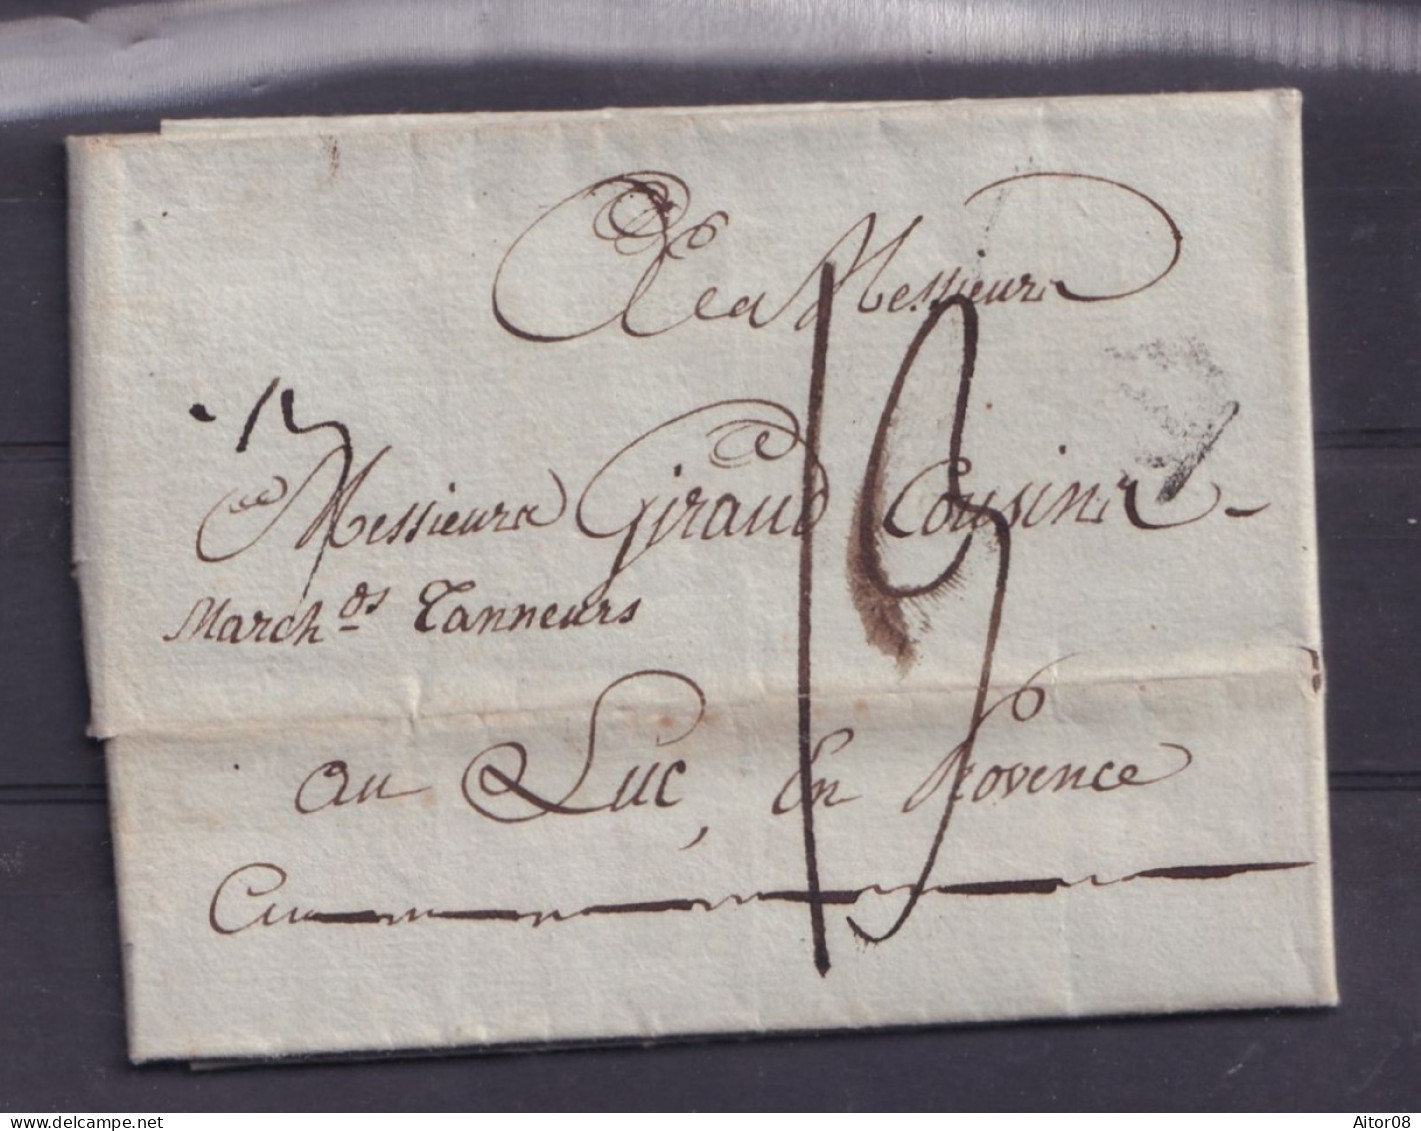 A Messieurs
Messieurs Giraud Cousins
March.ds Tanneurs
au Luc, En Provence
19
www.delcampe.net
Aitor08